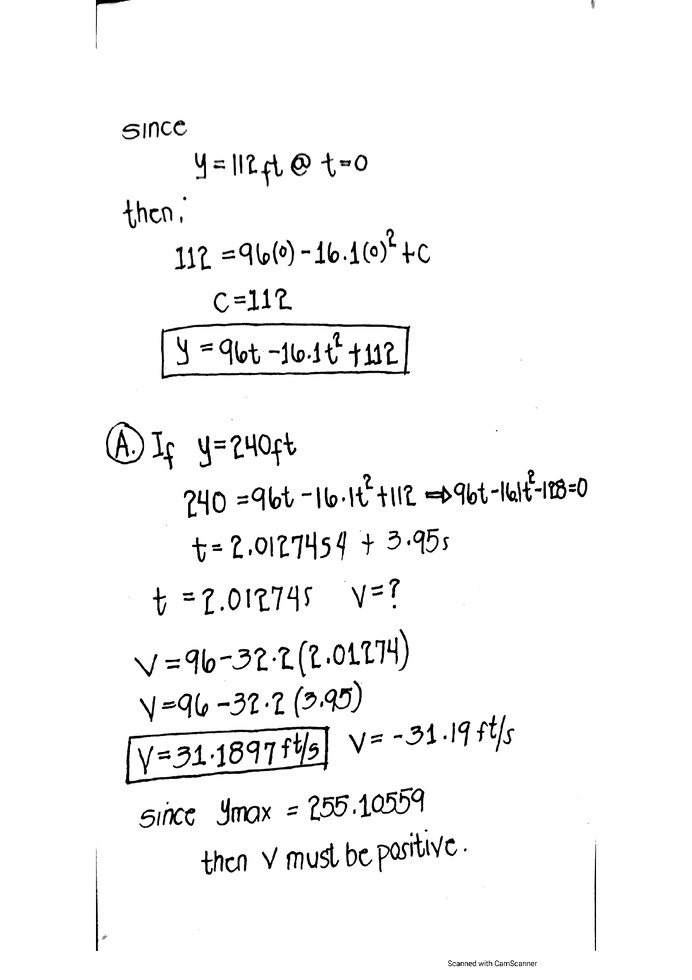 since
y = 112 ft @ t=0
then;
112 = 96(0) - 16.1(0)² + C
C = 112
y = 96t - 16.1t² + 112
A. If y = 240ft
240 = 96t - 16.1t² + 112 ⇒ 96t - 16.1t² - 128 = 0
t = 2.012745 4 + 3.95s
t = 2.01274s V = ?
V = 96 - 32.2 (2.01274)
V = 96 - 32.2 (3.95)
V = 31.1897 ft/s V = -31.19 ft/s
since ymax = 255.10559
then V must be positive.
Scanned with CamScanner